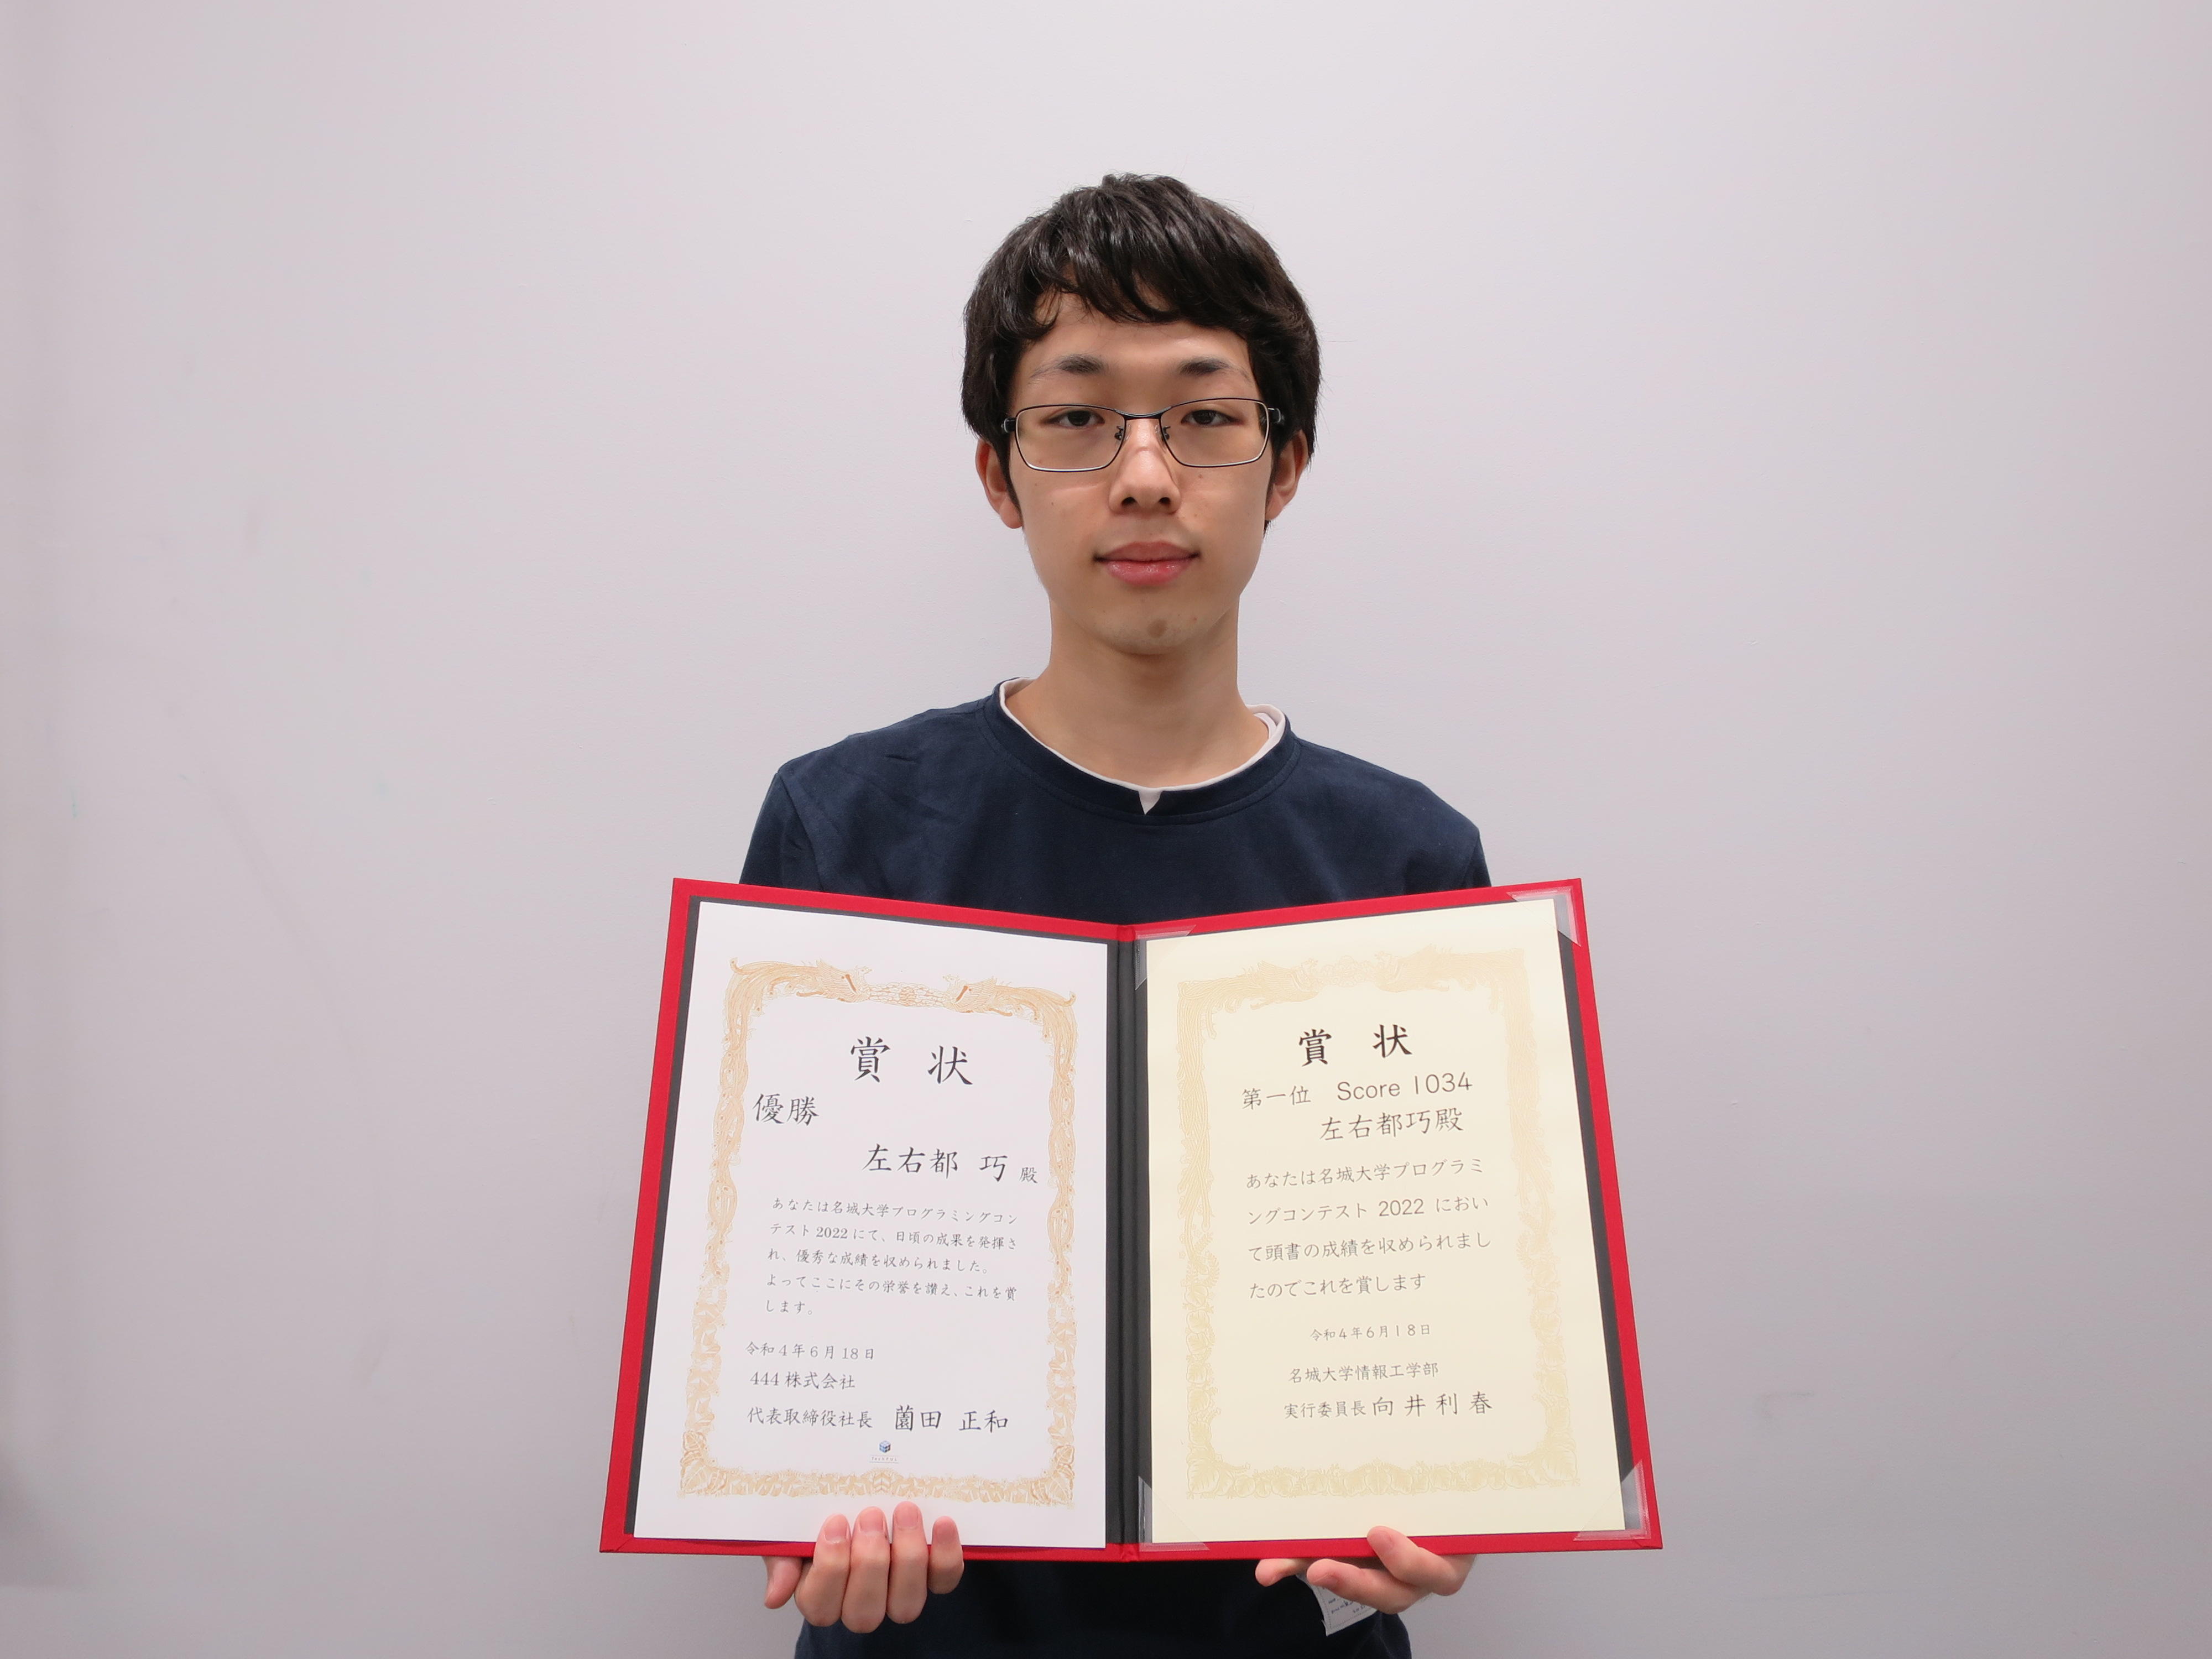 賞状
優勝
左右都 巧 殿
あなたは名城大学プログラミングコン
テスト2022にて、日頃の成果を発揮さ
れ、優秀な成績を収められました。
よってここにその栄誉を讃え、これを賞
します。
令和4年6月18日
444株式会社
代表取締役社長 薗田 正和
賞状
第一位 Score 1034
左右都巧殿
あなたは名城大学プログラミ
ングコンテスト 2022 におい
て頭書の成績を収められまし
たのでこれを賞します
令和4年6月18日
名城大学情報工学部
実行委員長 向井利春